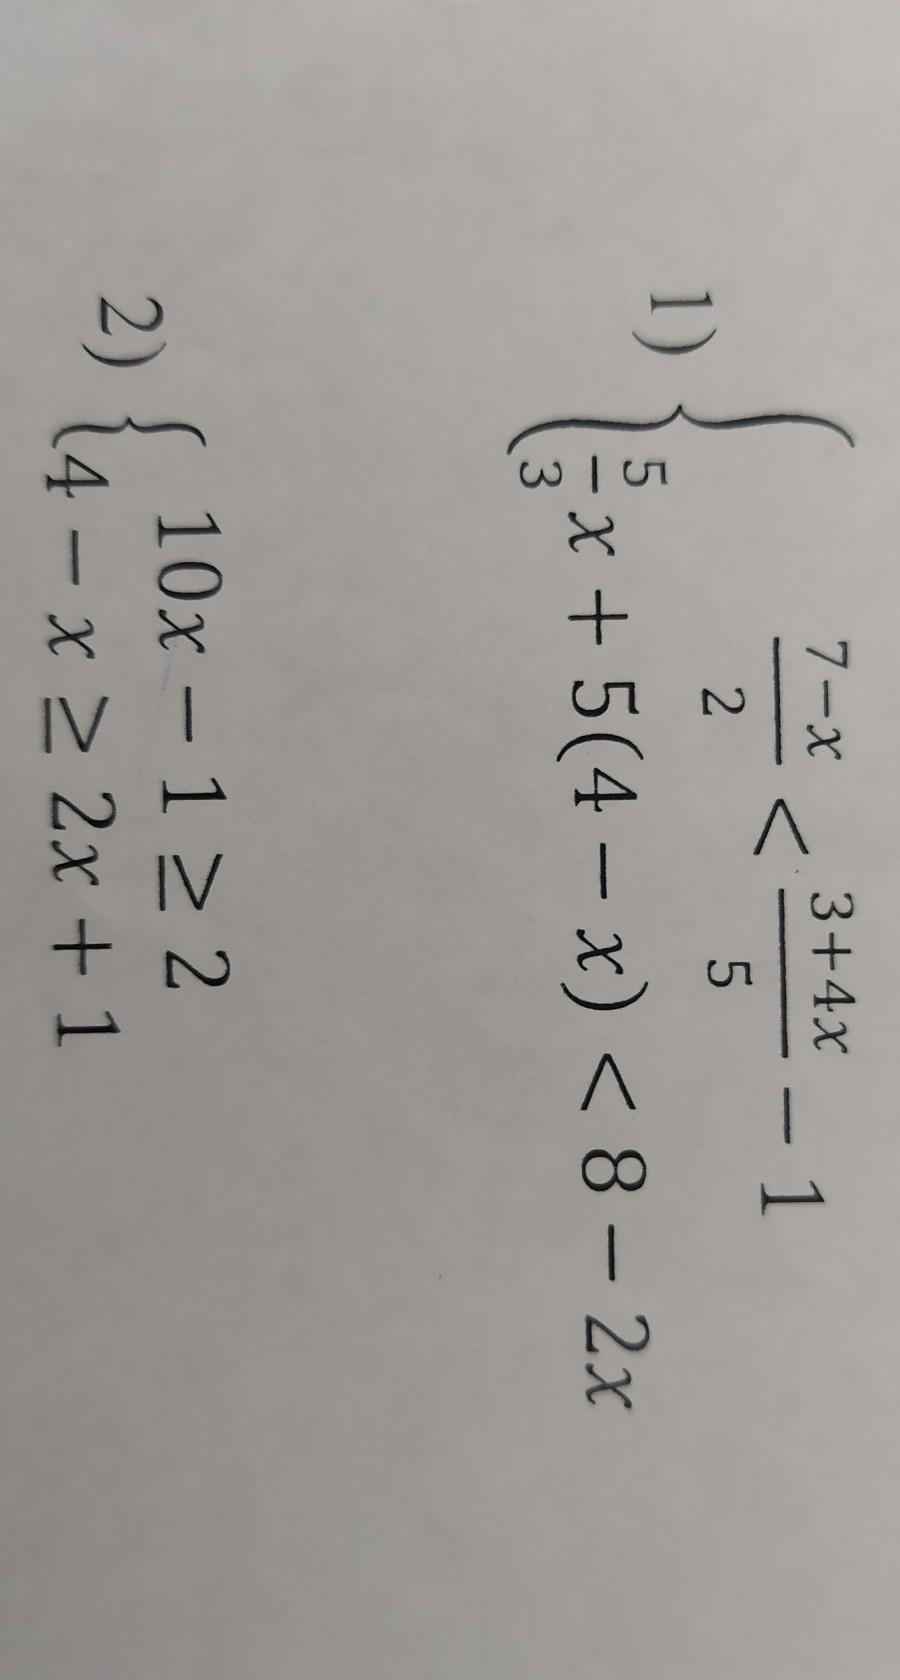 1) { (7−x)/2 < (3+4x)/5 − 1
5/3 x + 5(4 − x) < 8 − 2x
2) { 10x − 1 ≥ 2
4 − x ≥ 2x + 1